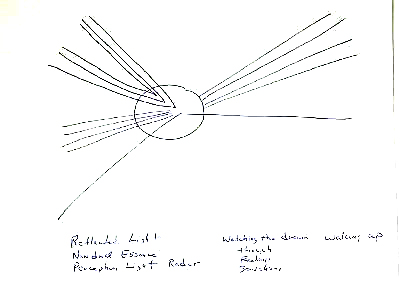 Reflected Light
Nondual Essence
Perception Light Radar
Watching the dream waking up
through
Feelings
Sensations